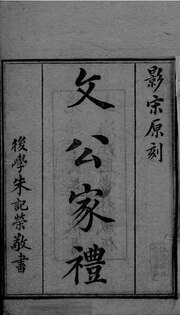 影宋原刻
文公家禮
後學朱記榮敬書